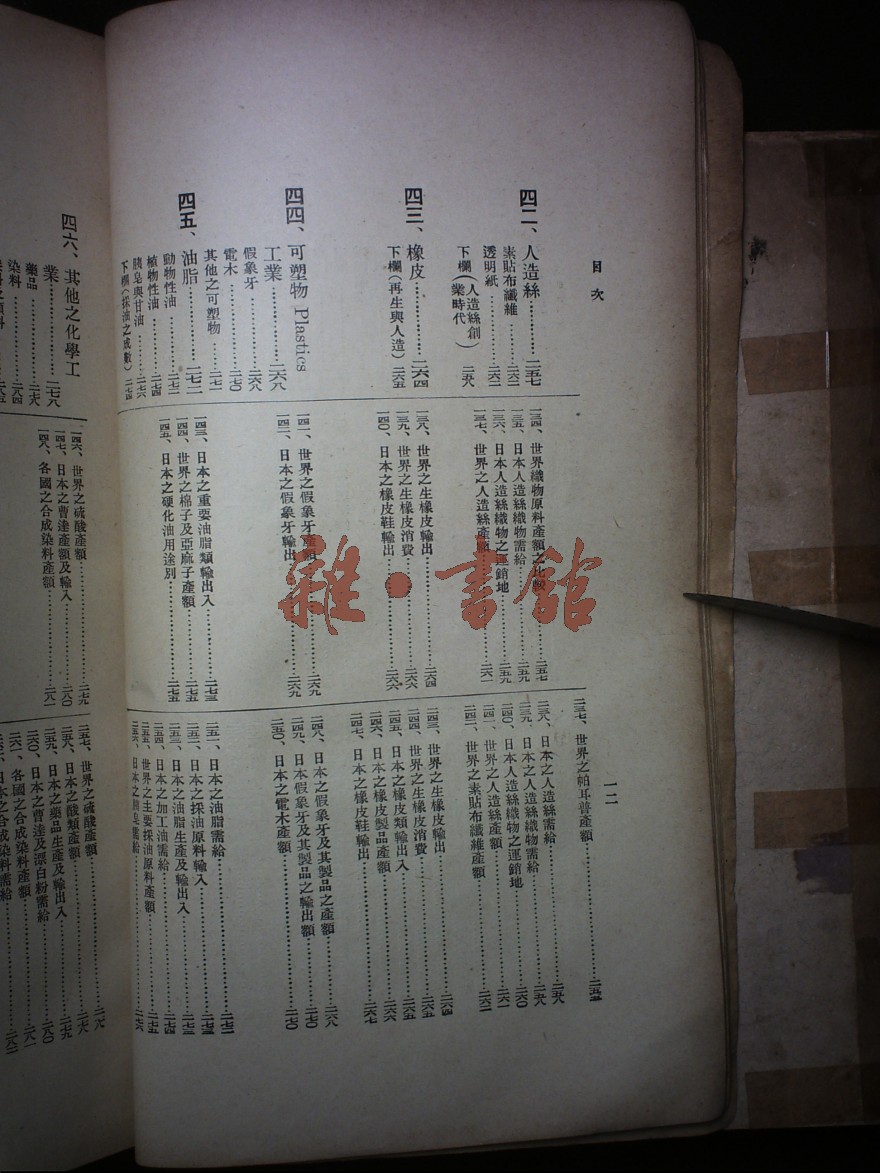 目次
一二
四二、人造絲…………二五七
素貼布纖維……二六二
透明紙……二六二
下欄(人造絲創業時代) 二五八
四三、橡皮…………二六四
下欄(再生與人造) 二六五
四四、可塑物 Plastics
工業…………二六八
假象牙……二六八
電木……二七〇
其他之可塑物……二七一
四五、油脂…………二七二
動物性油……二七二
植物性油……二七四
胰皂與甘油……二七六
下欄(採油之成數) 二七四
四六、其他之化學工
業…………二七八
藥品……二七八
染料……二八四
一三四、世界織物原料產額之比較……二五七
一三五、日本人造絲織物需給……二五九
一三六、日本人造絲織物之運銷地……二五九
一三七、世界之人造絲產額……二六一
一三八、世界之生橡皮輸出……二六四
一三九、世界之生橡皮消費……二六六
一四〇、日本之橡皮鞋輸出……二六六
一四一、世界之假象牙產額……二六九
一四二、日本之假象牙輸出……二六九
一四三、日本之重要油脂類輸出入……二七三
一四四、世界之棉子及亞麻子產額……二七五
一四五、日本之硬化油用途別……二七五
一四六、世界之硫酸產額……二七九
一四七、日本之曹達產額及輸入……二八〇
一四八、各國之合成染料產額……二八一
二三七、世界之帕耳普產額……二五五
二三八、日本之人造絲需給……二五八
二三九、日本之人造絲織物需給……二五八
二四〇、日本人造絲織物之運銷地……二六〇
二四一、世界之人造絲產額……二六一
二四二、世界之素貼布纖維產額……二六二
二四三、世界之生橡皮輸出……二六四
二四四、世界之生橡皮消費……二六五
二四五、日本之橡皮類輸出入……二六五
二四六、日本之橡皮製品產額……二六六
二四七、日本之橡皮鞋輸出……二六七
二四八、日本之假象牙及其製品之產額……二六八
二四九、日本假象牙及其製品之輸出額……二七〇
二五〇、日本之電木產額……二七〇
二五一、日本之油脂需給……二七二
二五二、日本之採油原料輸入……二七三
二五三、日本之油脂生產及輸出入……二七三
二五四、日本之加工油需給……二七四
二五五、世界之主要採油原料產額……二七五
二五六、日本之胰皂需給……二七六
二五七、世界之硫酸產額……二七八
二五八、日本之酸類產額……二七八
二五九、日本之藥品生產及輸出入……二七九
二六〇、日本之曹達及漂白粉需給……二八〇
二六一、各國之合成染料產額……二八一
日本之合成染料需給……二八二
雜·書館